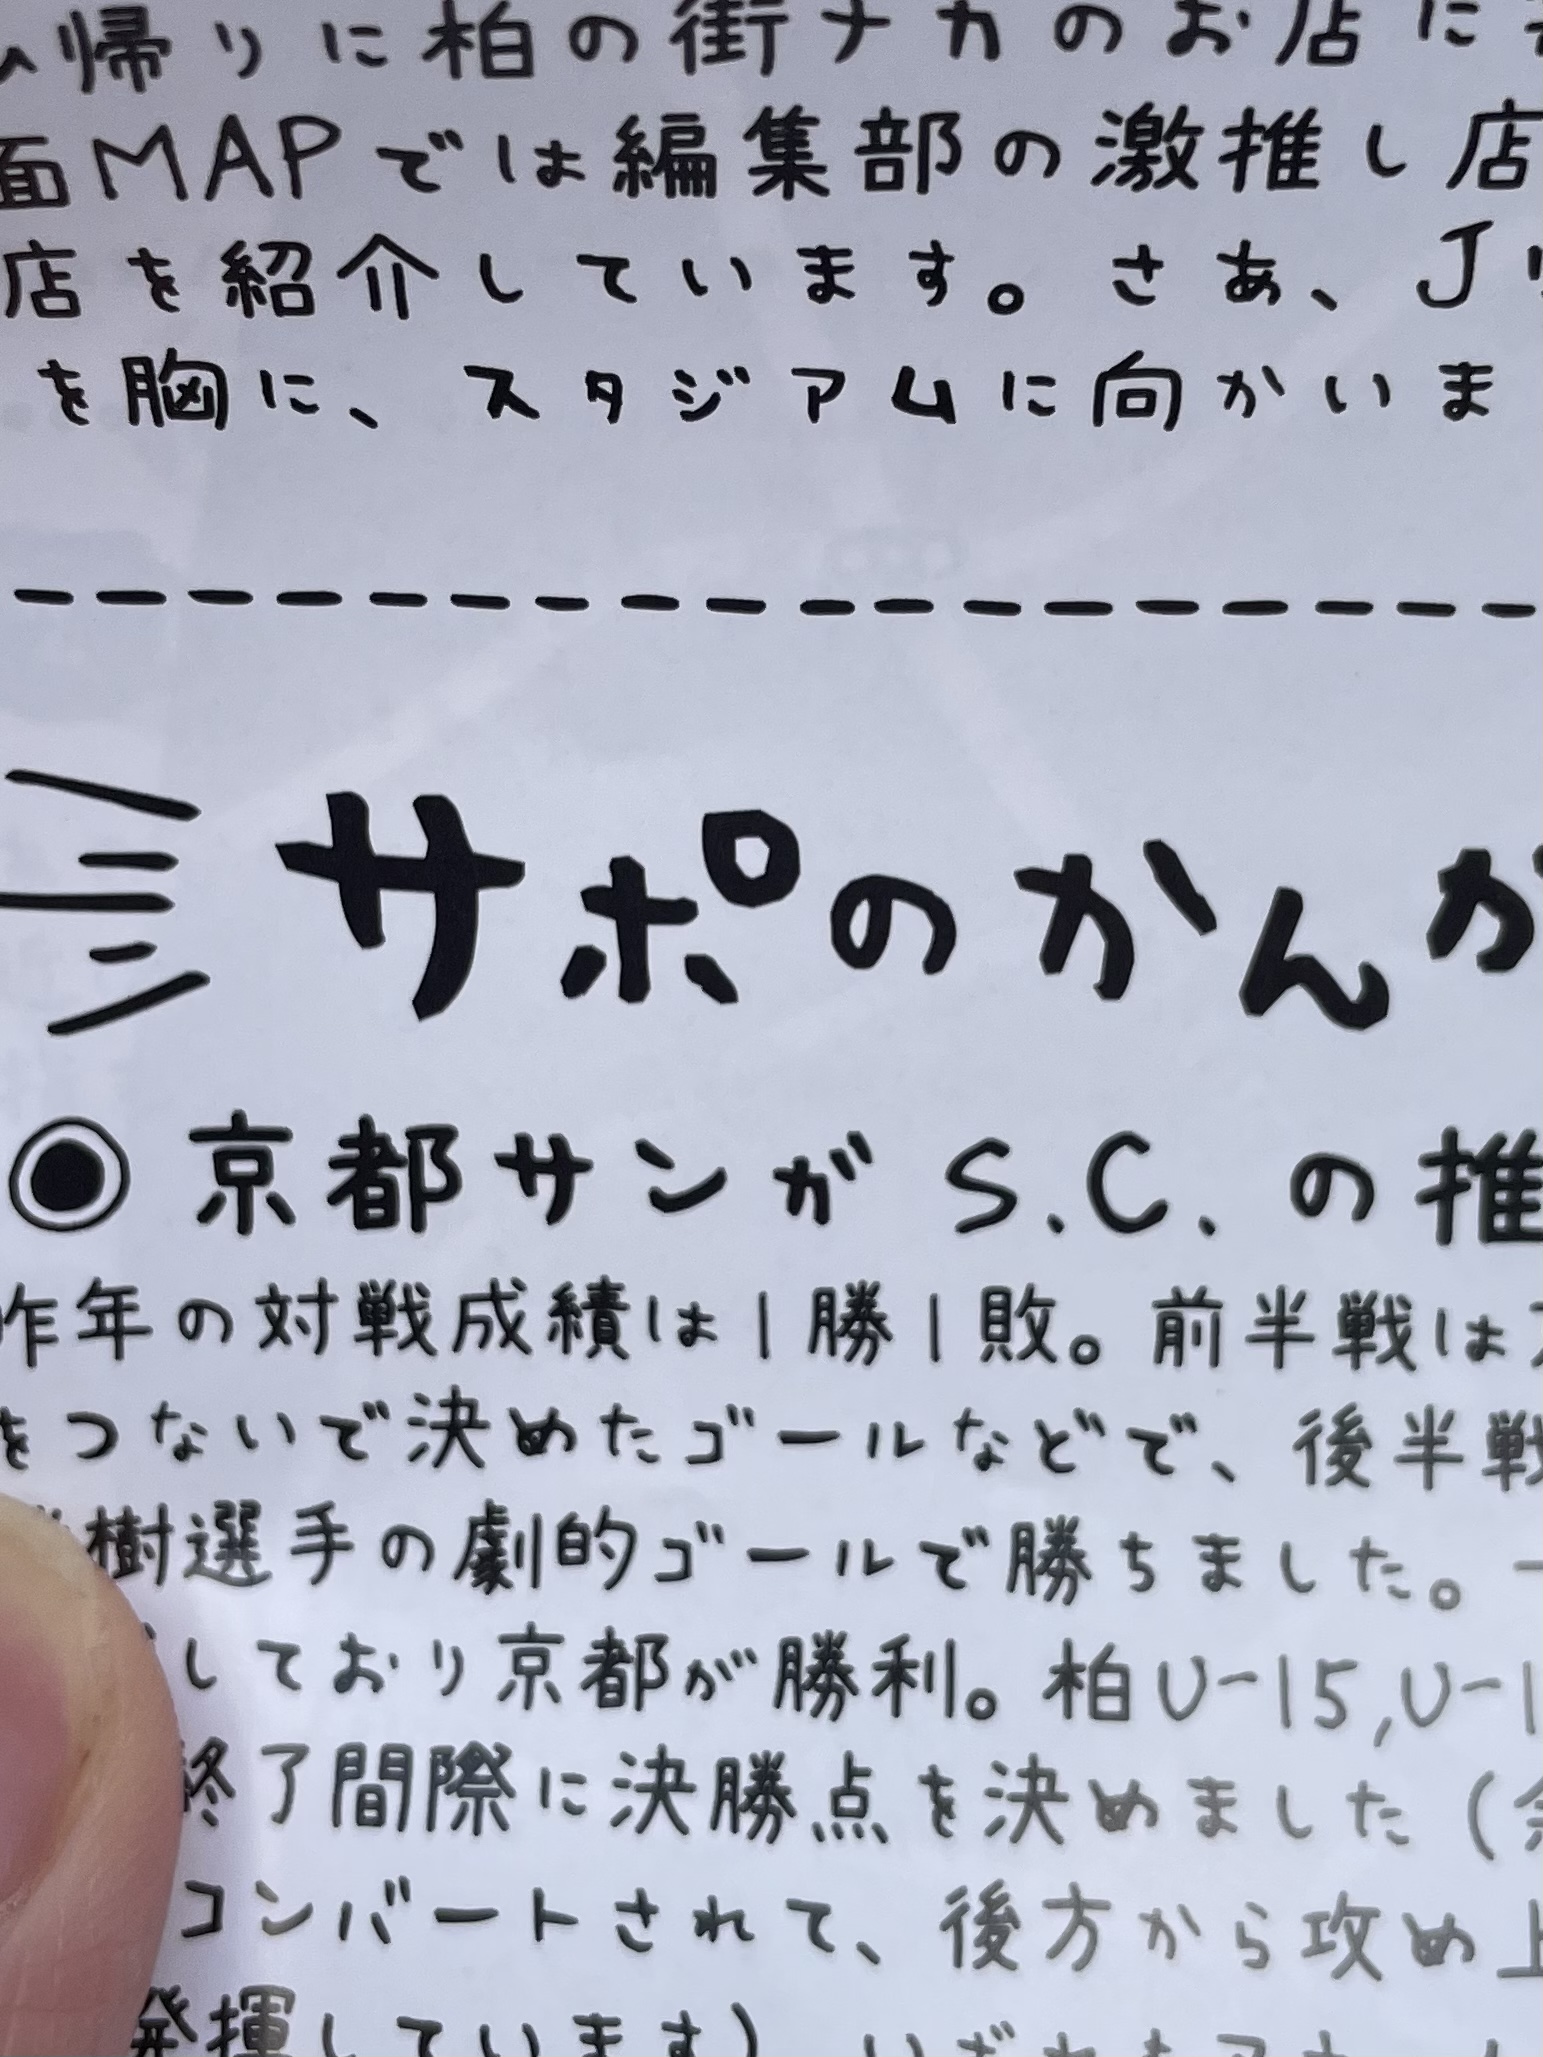 帰りに柏の街ナカのお店に
面MAPでは編集部の激推し店
店を紹介しています。さあ、J
を胸に、スタジアムに向かいま
サポのかんが
◉京都サンガS.C.の推
昨年の対戦成績は1勝1敗。前半戦は
をつないで決めたゴールなどで、後半戦
樹選手の劇的ゴールで勝ちました。
しており京都が勝利。柏U-15,U-1
終了間際に決勝点を決めました(
コンバートされて、後方から攻め上
発揮しています)